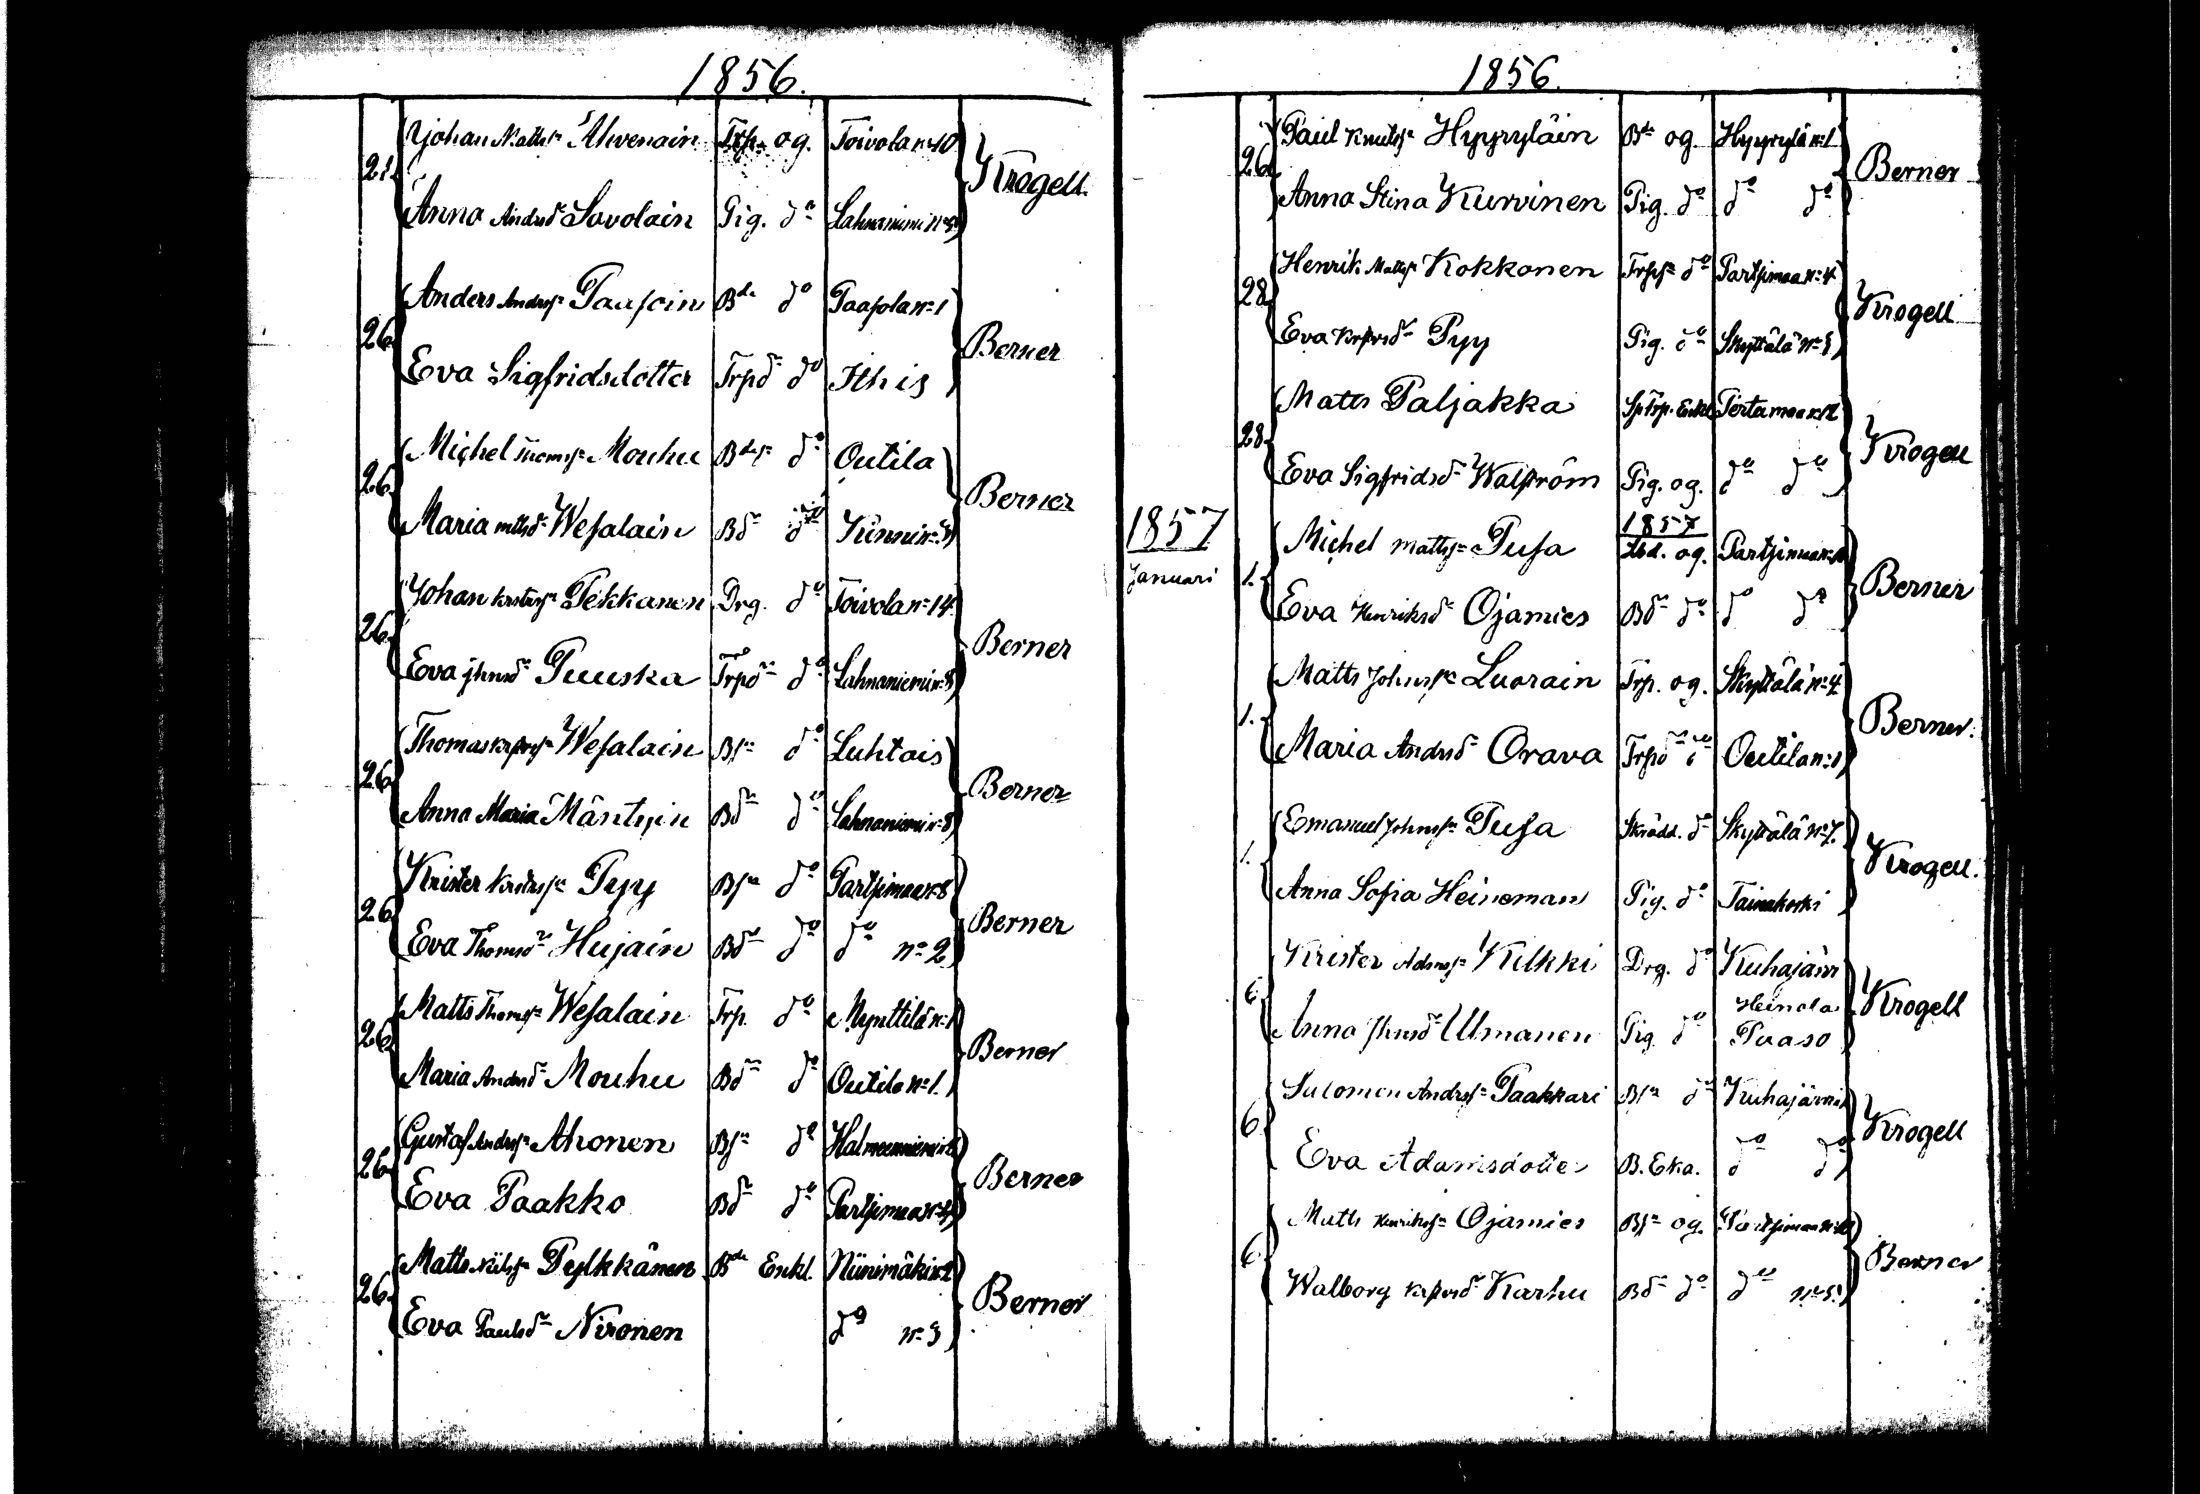 1856.
Johan Matts: Ahvenain Trp. og. Toivola n:o 10
21. Krogell.
Anna Andrsd: Savolain Pig. do Lahnaniemi n:o
Anders Andrss: Paasoin Bde do Paasola n:o 1
26. Berner
Eva Sigfridsdotter Trpd: do Ithis
Michel Thomss: Mouhu Bdes: do Outila
26. Berner
Maria mttsd: Wesalain Bd: do Kinni n:o
Johan Kristerss: Pekkanen Drg. do Toivola n:o 14.
26. Berner
Eva Jhnsd: Puuska Trpd: do Lahnaniemi n:o 8
Thomas Krstrss: Wesalain Bs: do Luhtais
26. Berner
Anna Maria Mäntyin Bd: do Lahnaniemi n:o 8
Krister Kristerss: Pyy Bs: do Partsimaa n:o 8
26. Berner
Eva Thomsd: Hujain Bd: do do n:o 2
Matts Thomss: Wesalain Trp. do Mynttilä n:o 1
26. Berner
Maria Andersd: Mouhu Bd: do Outila n:o 1.
Gustaf Andrss: Ahonen Bs: do Halmeenniemi
26. Berner
Eva Paakko Bd: do Partsimaa n:o
Matts Nilss: Pylkkänen Bde Enkl. Niinimäki n:o 2
26. Berner
Eva Paulsd: Nironen do n:o 3
1856.
Paul Knutss: Hypyyläin Bde og. Hypyylä n:o 1
26. Berner
Anna Stina Kurvinen Pig. do do do
Henrik Mattss: Kokkonen Trps: do Partsimaa n:o 4
28. Krogell
Eva Krstrsd: Pyy Pig. do Skyttälä n:o
Matts Paljakka SpTrp. Enkl. Pertamaa n:o 12
28. Krogell
Eva Sigfridsd: Walström Pig. og. do do
1857 1857
Michel Mattss: Pusa Lbd. og. Partsimaa n:o
Januari 1. Berner
Eva Henriksd: Ojamies Bd: do do do
Matts Johnss: Luorain Trp. og. Skyttälä n:o 4
1. Berner.
Maria Andrsd: Orava Trpd: do Outila n:o 1
Emanuel Johnss: Pusa Skrädd. do Skyttälä n:o 7.
1. Krogell.
Anna Sofia Heinoman Pig. do Tainakoski
Krister Adamss: Kilkki Drg. do Kuhajärvi
6. Heinola Krogell
Anna Jhnsd: Ulmanen Pig. do Puaso
Salomon Andrss: Paakkari Bs: do Kuhajärvi
6. Krogell
Eva Adamsdotter B. Eka. do do
Matts Henrikss: Ojamies Bs: og. Partsimaa n:o
6. Berner
Walborg Krstrsd: Karhu Bd: do do n:o 5.